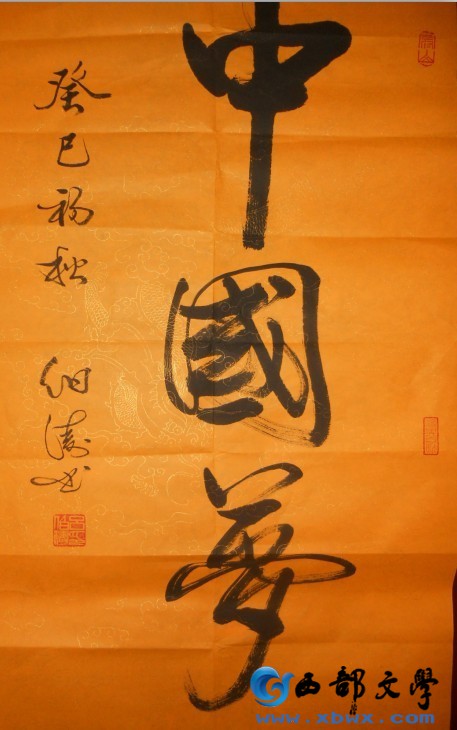 中國夢
癸巳初秋
涛书
西部文學
www.xbwx.com